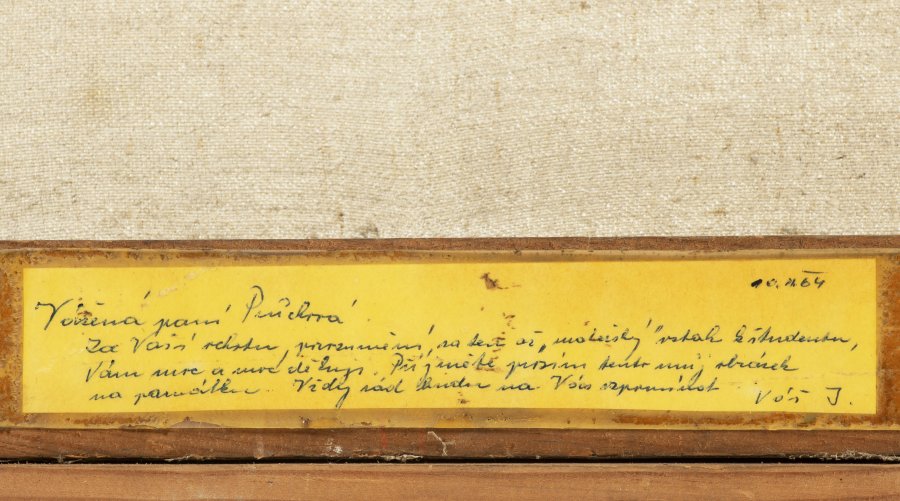 10. II. 64
Vážená paní Průchová
Za Vaší ochotu, porozumění, za ten až „mateřský" vztah k studentu,
Vám moc a moc děkuji. Přijměte prosím tento můj obrázek
na památku. Vždy rád budu na Vás vzpomínat Váš J.